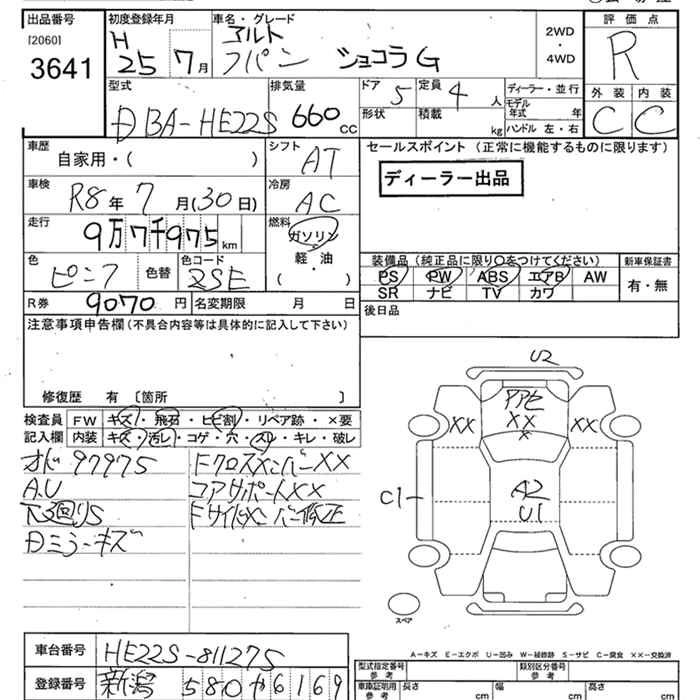 出品番号
[2060]
3641
初度登録年月
H
25 7月
車名・グレード
アルト
ラパン ショコラG
2WD
・
4WD
評価点
R
外装 内装
C C
型式
DBA-HE22S
排気量
660 cc
ドア
5
形状
定員
4 人
積載
kg
ディーラー・並行
モデル
年式 年
ハンドル 左・右
車歴
自家用・( )
シフト
AT
セールスポイント (正常に機能するものに限ります)
ディーラー出品
車検
R8年 7 月(30日)
冷房
AC
走行
9万7千975km
燃料
ガソリン
軽・油
( )
色
ピンク
色替
色コード
ZSE
装備品(純正品に限り○をつけてください)
新車保証書
PS PW ABS エアB AW
SR ナビ TV カワ
有・無
R券 9070 円
名変期限 月 日
後日品
注意事項申告欄(不具合内容等は具体的に記入して下さい)
修復歴 有 〔箇所 〕
検査員
記入欄
FW キズ・飛石・ヒビ割・リペア跡・×要
内装 キズ・汚レ・コゲ・穴・スレ・キレ・破レ
オド 97975
A.U
下回りS
Dミラーキズ
FクロスメンバーXX
コアサポートXX
Fサイドメンバー修正
U2
PPE
XX
XX
XX
X
C1
A2
U1
スペア
A-キズ E-エクボ U-凹み W-補修跡 S-サビ C-腐食 ××-交換済
車台番号 HE22S-811275
登録番号 新潟 580 か 6169
型式指定番号
参考
類別区分番号
参考
車庫証明用
参考
長さ cm
幅 cm
高さ cm